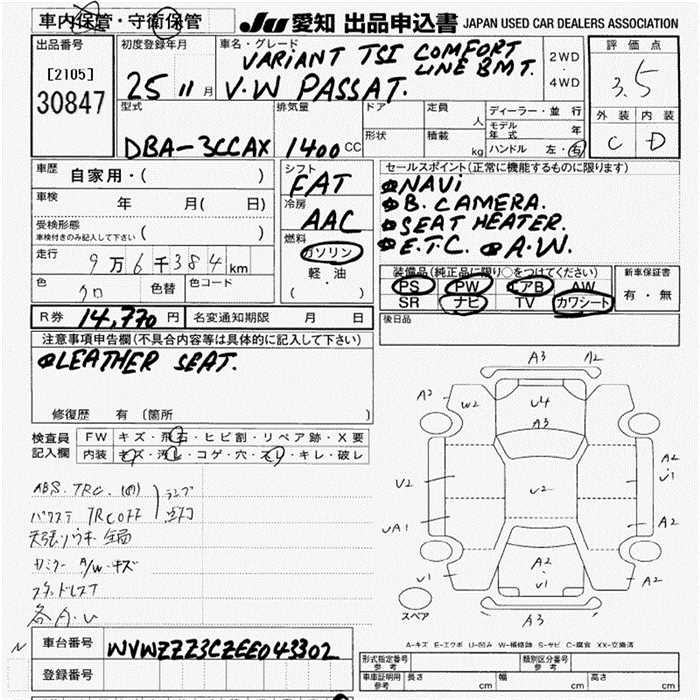 車内保管・守衛保管 JU 愛知 出品申込書 JAPAN USED CAR DEALERS ASSOCIATION
出品番号
[2105]
30847
初度登録年月
25 11月
車名・グレード
VARIANT TSI COMFORT
LINE BMT.
V.W PASSAT.
2WD
・
4WD
評価点
3.5
外装 内装
C D
型式
DBA-3CCAX
排気量
1400 CC
ドア
形状
定員
人
積載
kg
ディーラー・並行
モデル年式 年
ハンドル 左・右
車歴
自家用・( )
車検
年 月( 日)
受検形態
車検付きのみ記入して下さい ( )
走行
9万6千384km
色
クロ
色替
色コード
( )
シフト
FAT
冷房
AAC
燃料
ガソリン
・
軽・油
( )
セールスポイント(正常に機能するものに限ります)
NAVi
B. CAMERA.
SEAT HEATER.
E.T.C. A.W.
装備品(純正品に限り○をつけてください)
PS PW エアB AW
SR ナビ TV カワシート
新車保証書
有・無
R券 14,770円 名変通知期限 月 日
後日品
注意事項申告欄(不具合内容等は具体的に記入して下さい)
LEATHER SEAT.
修復歴 有 〔箇所 〕
検査員
記入欄
FW キズ・飛石・ヒビ割・リペア跡・X要
内装 キズ・汚レ・コゲ・穴・スレ・キレ・破レ
ABS.TRC.
TRC OFF
ランプ
A/W キズ
A3
A2
A2
W2
U4
A3
U2
U2
A2
U1
UA1
A2
U1
A2
U1
A2
A3
スペア
A-キズ E-エクボ U-凹み W-補修跡 S-サビ C-腐食 XX-交換済
N
車台番号 WVWZZZ3CZEE043302
登録番号
形式指定番号
参考
類別区分番号
参考
車庫証明用
参考
長さ cm 幅 cm 高さ cm